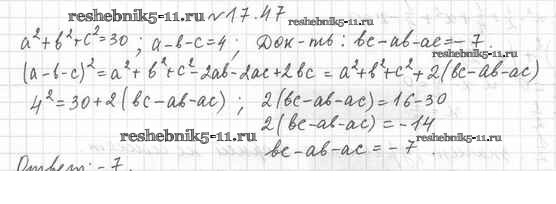 reshebnik5-11.ru № 17.47 reshebnik5-11.ru
a²+b²+c²=30; a-b-c=4; Док-ть: bc-ab-ac=-7
reshebnik5-11.ru
(a-b-c)²=a²+b²+c²-2ab-2ac+2bc = a²+b²+c²+2(bc-ab-ac)
4²=30+2(bc-ab-ac); 2(bc-ab-ac)=16-30
reshebnik5-11.ru 2(bc-ab-ac)=-14 reshebnik5-11.ru
bc-ab-ac=-7.
Ответ: -7.